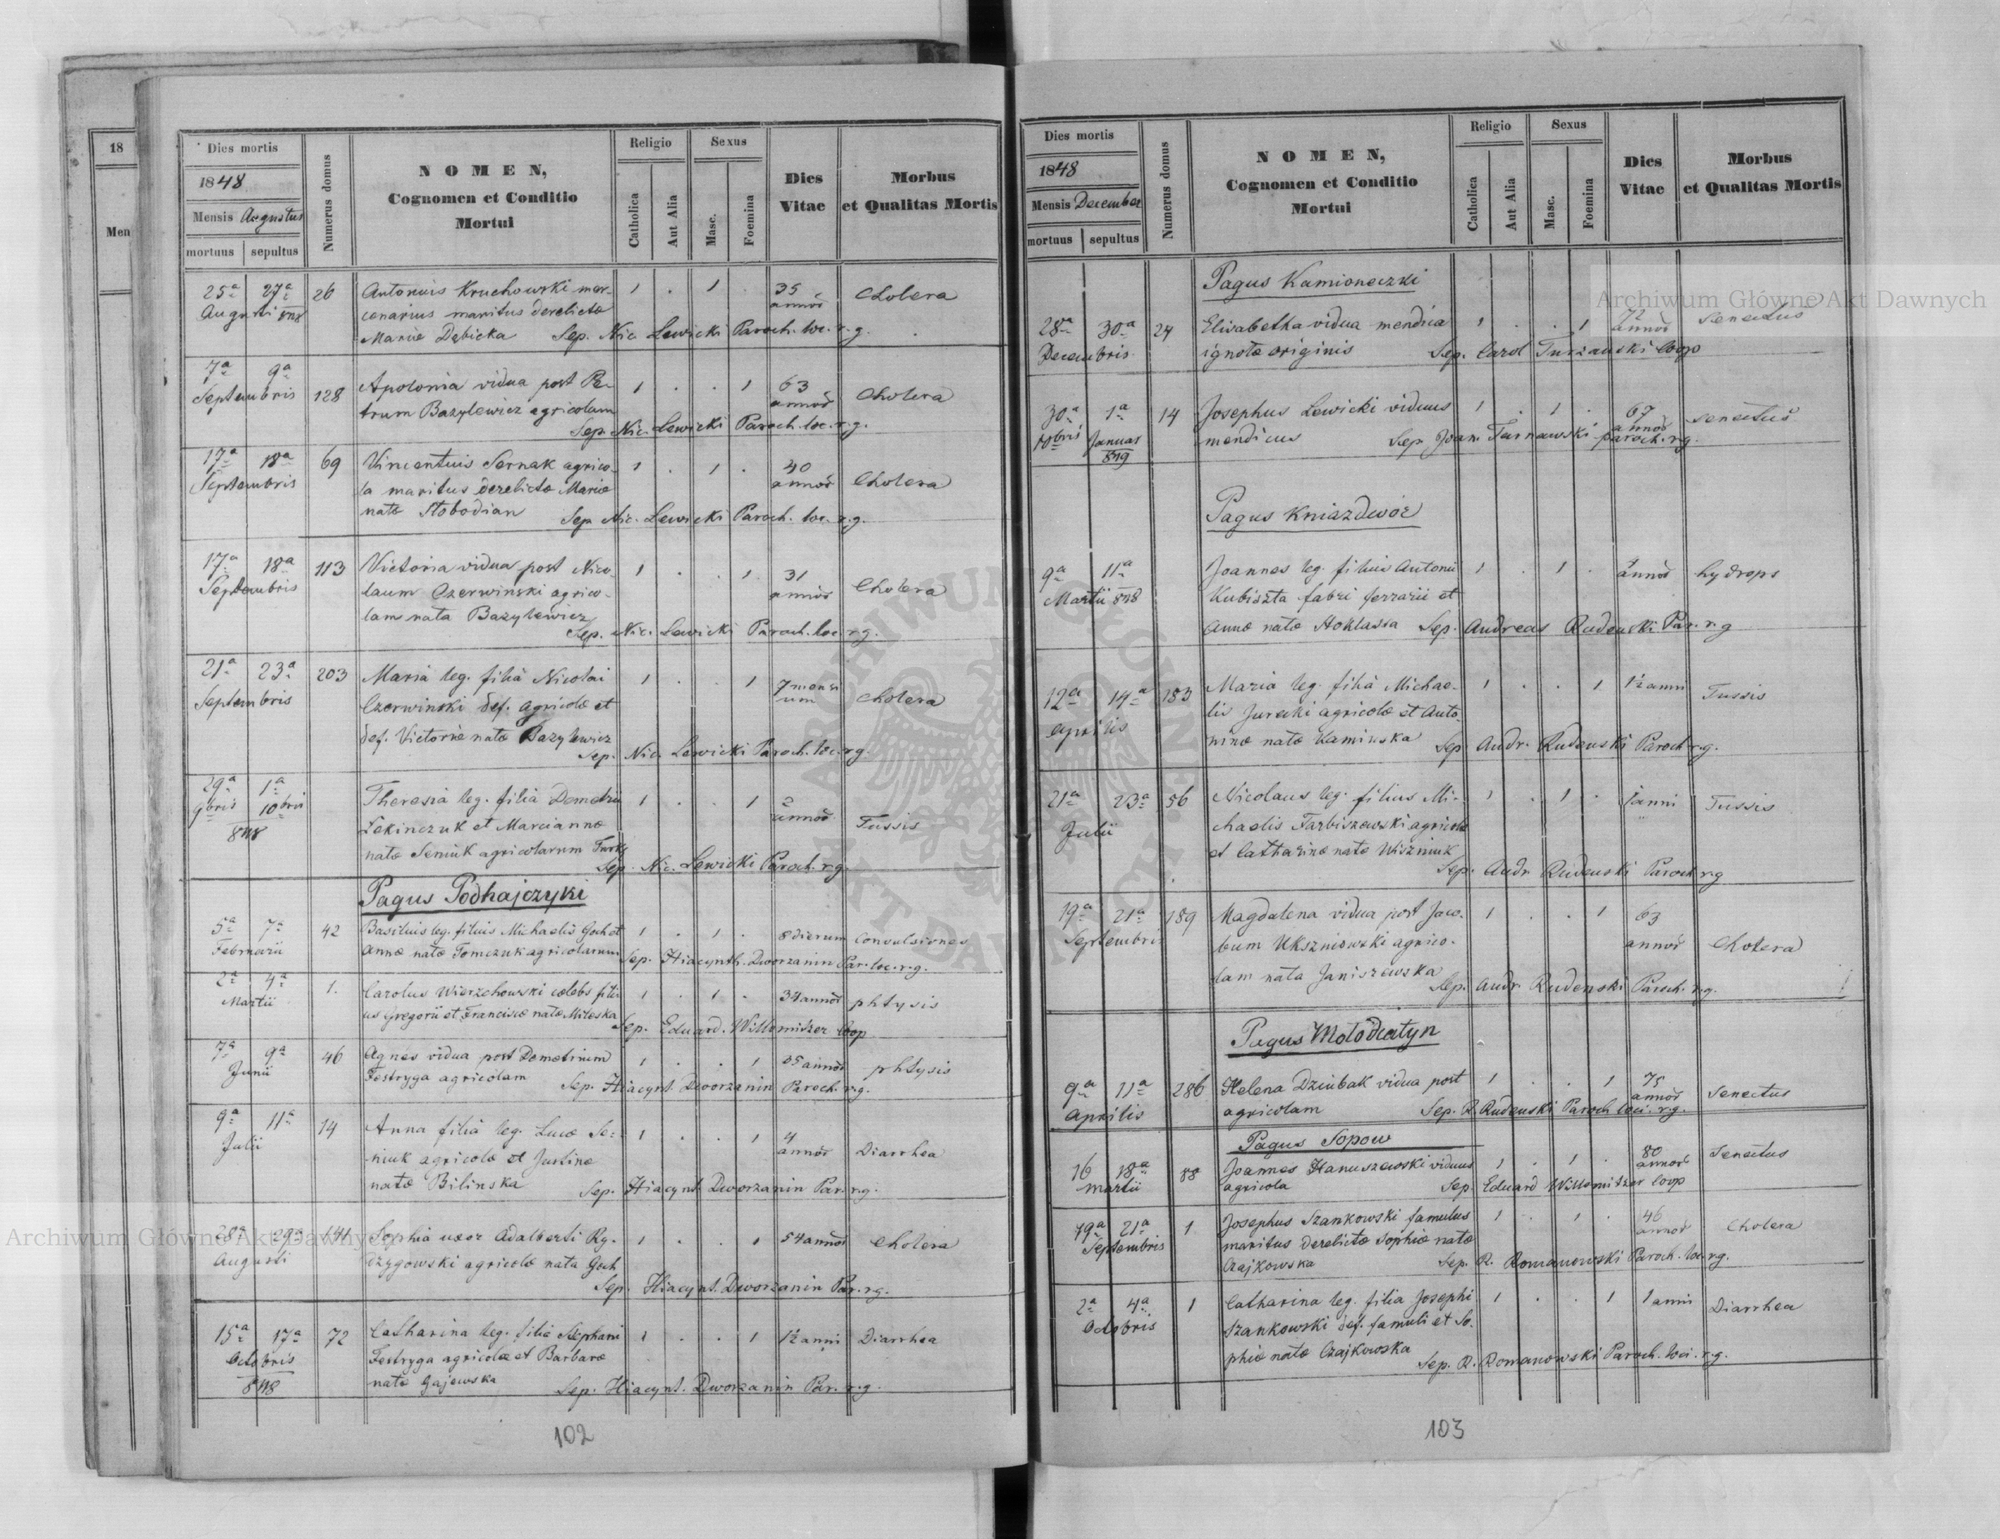 18
Men
Dies mortis
1848
Mensis Augustus
mortuus sepultus
Numerus domus
NOMEN,
Cognomen et Conditio
Mortui
Religio
Catholica
Aut Alia
Sexus
Masc.
Foemina
Dies
Vitae
Morbus
et Qualitas Mortis
25a 27a 26 Antonius Kruchowski mer- 1 . 1 . 35 Cholera
Augusti 848 cenarius maritus derelictae annor
Mariae Dębicka Sep. Nic. Lewicki Paroch. loc. r. g.
7a 9a
Septembris 128 Apolonia vidua post Pe- 1 . . 1 63 Cholera
trum Bazylewicz agricolam annor
Sep. Nic. Lewicki Paroch. loc. r. g.
17a 18a 69 Vincentius Sernak agrico- 1 . 1 . 40 Cholera
Septembris la maritus derelictae Mariae annor
natae Slobodian Sep Nic. Lewicki Paroch. loc. r. g.
17a 18a 113 Victoria vidua post Nico- 1 . . 1 31 Cholera
Septembris laum Czerwinski agrico- annor
lam nata Bazylewicz
Sep. Nic. Lewicki Paroch. loc. r. g.
21a 23a 203 Maria leg. filia Nicolai 1 . . 1 7 mensi Cholera
Septembris Czerwinski def. agricolae et um
def. Victoriae natae Bazylewicz
Sep. Nic. Lewicki Paroch. loc. r. g.
29a 1a Theresia leg. filia Demetrii 1 . . 1 2 Tussis
9bris 10bris Lekinczuk et Mariannae annor
848 natae Seniuk agricolarum
Sep. Nic. Lewicki Paroch. r. g.
Pagus Podhajczyki
5a 7a 42 Basilius leg. filius Michaelis Goch et 1 . 1 . 8 dierum Convulsiones
Februarii Annae natae Tomczuk agricolarum Sep. Hiacynth. Dworzanin Par. loc. r. g.
2a 4a 1. Carolus Wierzchowski caelebs fili- 1 . 1 . 34 annor phtysis
Martii us Gregorii et Franciscae natae Mileska Sep. Eduard. Willomitzer Coop
7a 9a 46 Agnes vidua post Demetrium 1 . . 1 annor phtysis
Junii Festryga agricolam Sep. Hiacynt. Dworzanin Paroch. r. g.
9a 11a 14 Anna filia leg. Lucae Se- 1 . . 1 4 Diarrhea
Julii niuk agricolae et Justinae annor
natae Bilinska Sep. Hiacynt. Dworzanin Par. r. g.
28a 29a 141 Sophia uxor Adalberti Ry- 1 . . 1 54 annor Cholera
Augusti dzygowski agricolae nata Goch
Sep. Hiacynt. Dworzanin Par. r. g.
15a 17a 72 Catharina leg. filia Stephani 1 . . 1 1½ anni Diarrhea
Octobris Festryga agricolae et Barbarae
848 natae Gajewska Sep. Hiacynt. Dworzanin Par. r. g.
102
Dies mortis
1848
Mensis December
mortuus sepultus
Numerus domus
NOMEN,
Cognomen et Conditio
Mortui
Religio
Catholica
Aut Alia
Sexus
Masc.
Foemina
Dies
Vitae
Morbus
et Qualitas Mortis
Pagus Kamioneczki
28a 30a 24 Elisabetha vidua mendica 1 . . 1 72 annor Senectus
Decembris ignotae originis Sep. Carol Turzanski Coop
30a 1a 14 Josephus Lewicki viduus 1 . 1 . 67 annor Senectus
10bris Januar mendicus Sep Joan. Tarnawski paroch. r. g.
849
Pagus Kniazdwór
9a 11a Joannes leg. filius Antonii 1 . 1 . annor hydrops
Martii 848 Kubiszta fabri ferrarii et
Annae natae Sep. Andreas Rudenski Par. r. g
12a 14a 183 Maria leg. filia Michae- 1 . . 1 1½ anni Tussis
Aprilis lis Jurecki agricolae et Anto-
ninae natae Kaminska Sep Andr. Rudenski Paroch r. g.
21a 23a 56 Nicolaus leg. filius Mi- 1 . 1 . 1 anni Tussis
Julii chaelis Farbiszewski agricolae
et Catharinae natae Wiszniuk
Sep. Andr Rudenski Paroch r. g
19a 21a 189 Magdalena vidua post Jaco- 1 . . 1 63 Cholera
Septembris bum Ukszniowski agrico- annor
lam nata Janiszewska
Sep. Andr Rudenski Paroch. r. g.
Pagus Molodiatyn
9a 11a 286 Helena Dziubak vidua post 1 . . 1 75 Senectus
Aprilis agricolam Sep. R. Rudenski Paroch loci. r. g. annor
Pagus Sopow
16 18a 88 Joannes Hanuszewski viduus 1 . 1 . 80 annor Senectus
Martii agricola Sep. Eduard Willomitzer Coop
19a 21a 1 Josephus Szankowski famulus 1 . 1 . 46 Cholera
Septembris maritus derelictae Sophiae natae annor
Czajkowska Sep. R. Romanowski Paroch. loc. r. g.
2a 4a 1 Catharina leg. filia Josephi 1 . . 1 1 anni Diarrhea
Octobris Szankowski def. famuli et So-
phiae natae Czajkowska Sep. R. Romanowski Paroch. loci. r. g.
103
Archiwum Główne Akt Dawnych
Archiwum Główne Akt Dawnych
ARCHIWUM GŁÓWNE AKT DAWNYCH